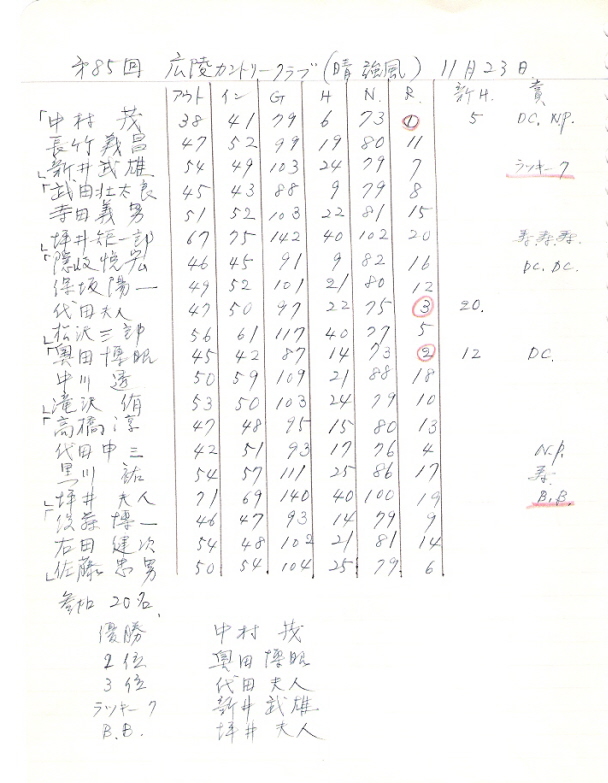 第85回 広陵カントリークラブ (晴 強風) 11月23日
アウト イン G H N. R. 新H. 賞
「中村 茂 38 41 79 6 73 ① 5 DC. N.P.
長竹義昌 47 52 99 19 80 11
新井武雄 54 49 103 24 79 7 ラッキー7
「武田壮太良 45 43 88 9 79 8
寺田義男 51 52 103 22 81 15
坪井矩一郎 67 75 142 40 102 20
「隠 悦宏 46 45 91 9 82 16 DC. DC.
保坂陽一 49 52 101 21 80 12
代田夫人 47 50 97 22 75 ③ 20.
松沢三郎 56 61 117 40 77 5
「奥田博 45 42 87 14 73 ② 12 DC.
中川 50 59 109 21 88 18
滝沢 53 50 103 24 79 10
「高橋 淳 47 48 95 15 80 13
代田申三 42 51 93 17 76 4 N.P.
黒川 祐 54 57 111 25 86 17
坪井夫人 71 69 140 40 100 19 B.B.
「後藤博一 46 47 93 14 79 9
右田健次 54 48 102 21 81 14
佐藤忠男 50 54 104 25 79 6
参加 20名.
優勝 中村 茂
2位 奥田博
3位 代田夫人
ラッキー7 新井武雄
B.B. 坪井夫人